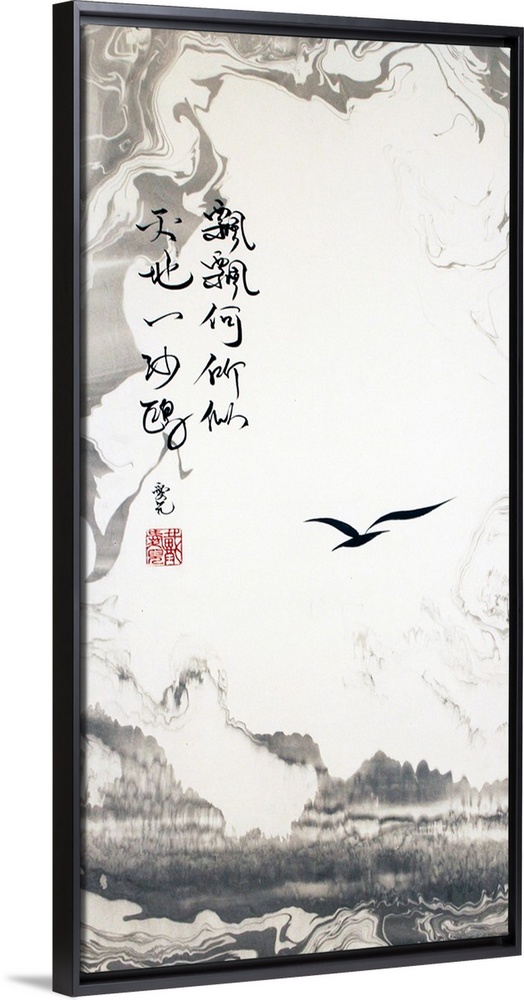 飄飄何所似
天地一沙鷗